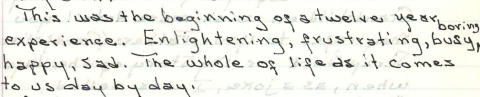 This was the beginning of a twelve year, boring
experience. Enlightening, frustrating, busy,
happy, sad. The whole of life as it comes
to us day by day.